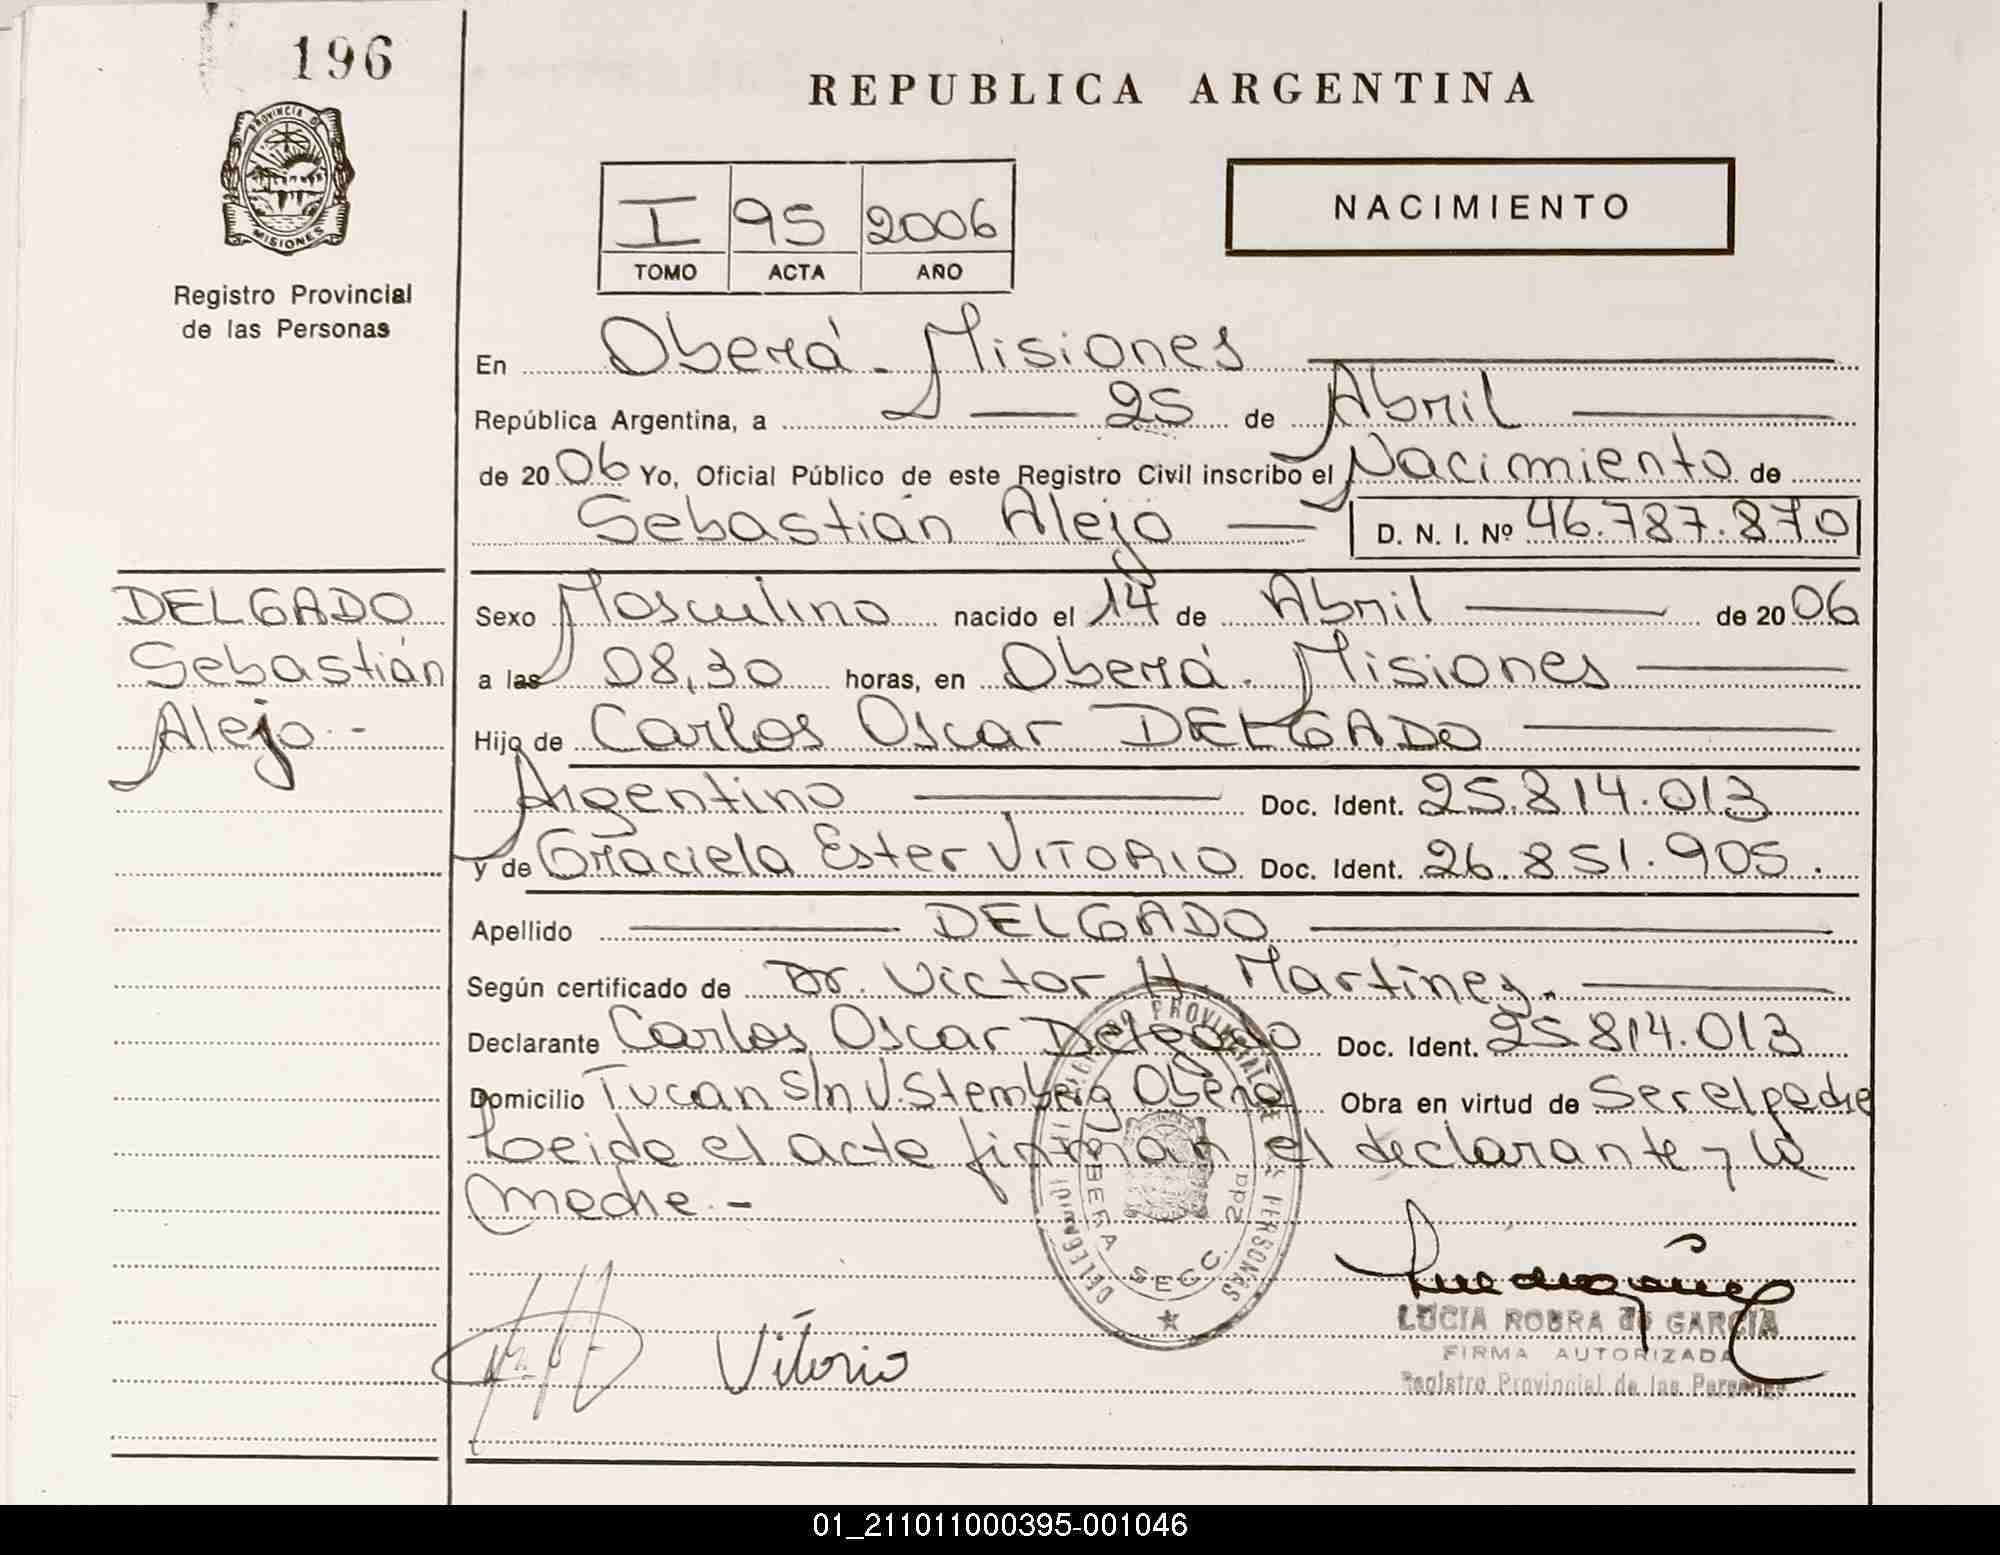 196
REPUBLICA ARGENTINA
PROVINCIA D
MISIONES
Registro Provincial
de las Personas
I 95 2006
TOMO ACTA AÑO
NACIMIENTO
En Oberá - Misiones
República Argentina, a 25 de Abril
de 2006 Yo, Oficial Público de este Registro Civil inscribo el Nacimiento de
Sebastián Alejo D. N. I. Nº 46.787.870
DELGADO
Sebastián
Alejo.-
Sexo Masculino nacido el 14 de Abril de 2006
a las 08,30 horas, en Oberá. Misiones
Hijo de Carlos Oscar DELGADO
Argentino Doc. Ident. 25.814.013
y de Graciela Ester VITORIO Doc. Ident. 26.851.905.
Apellido DELGADO
Según certificado de Dr. Victor H. Martinez.
Declarante Carlos Oscar Delgado Doc. Ident. 25.814.013
Domicilio Tucan S/n V. Stemberg Oberá Obra en virtud de Ser el padre
Leida el acta firman el declarante y la
madre.-
PROVINCIAL DE LAS PERSONAS
OBERA SECC. 2da
Vitorio
LUCIA ROBRA de GARCIA
FIRMA AUTORIZADA
Registro Provincial de las Personas
01_211011000395-001046